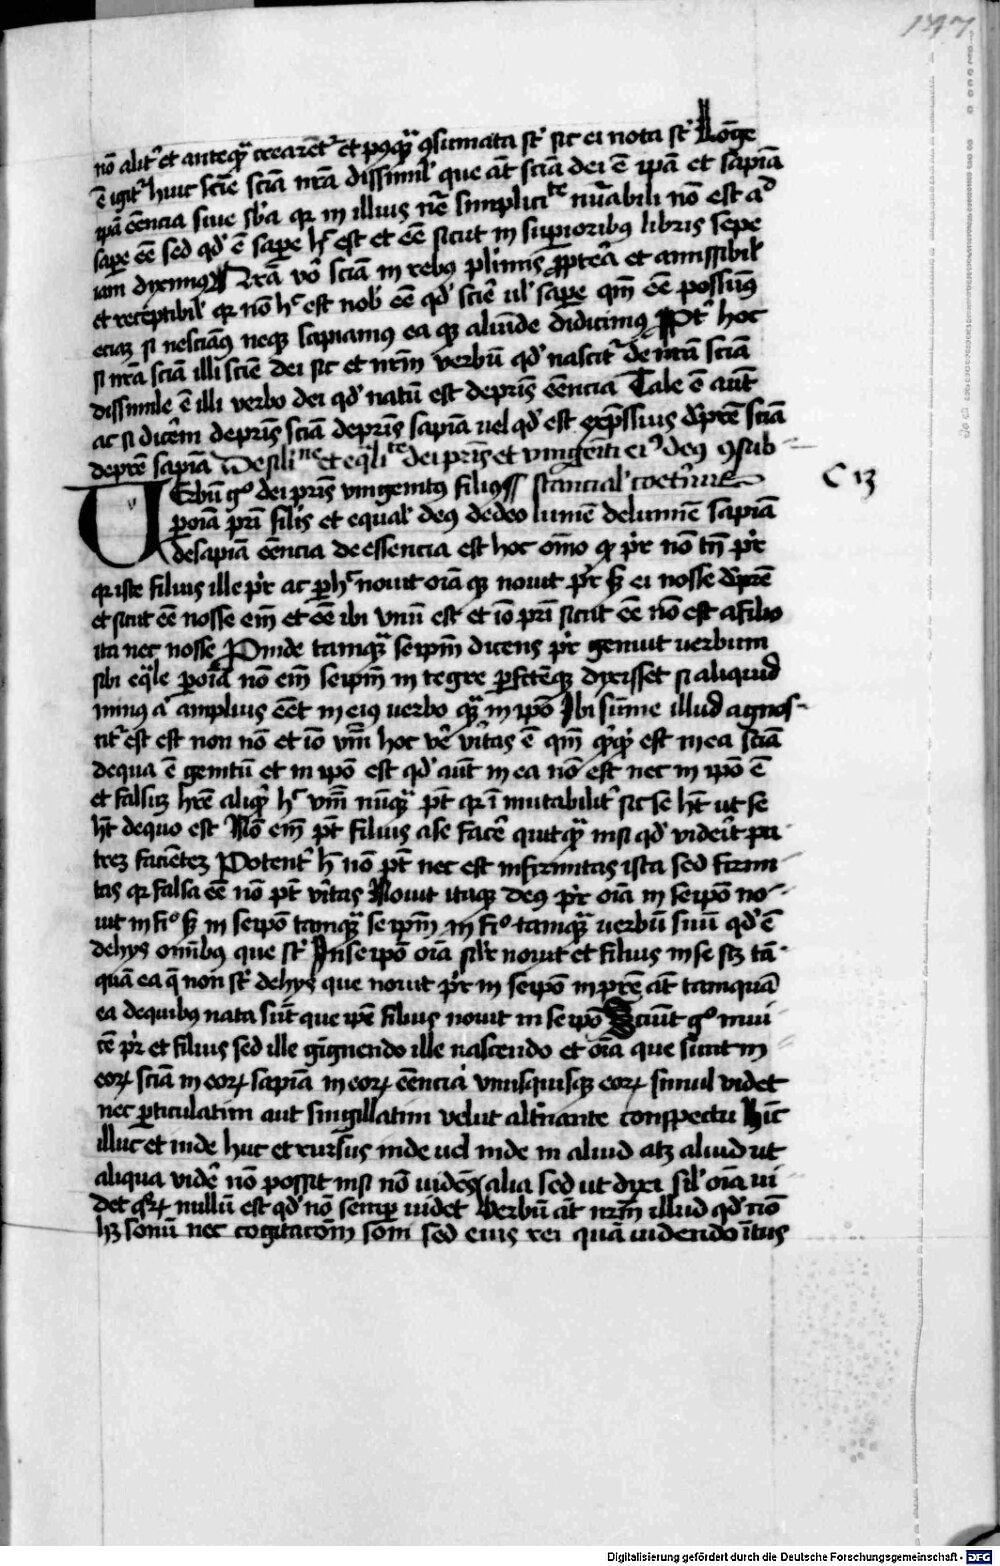 147
nō alitᷣ et anteqᷓ crearētᷣ et pꝰqᷓ ꝯsumata sᷣt sic ei nota sᷣt Lōge
ē igitᷣ huic scīe sciā nr̄a dissimilꝭ que aūt sciā dei ē ip̄a et sapiā
ip̄a eēncia siue sb̄a qꝛ in illius nr̄e simplicitͤ mr̄abili nō est ad
sapͤ eē sed qd̛ ē sapere hᷦ est et eē sicut in supͤioribꝰ libris sepe
iam dyximꝰ Nr̄a vͦo sciā in rebꝰ plimis ꝓptͤea et amissibilꝭ
et receptibilꝭ qꝛ nō hᷦ est nobꝭ eē qd̛ scīe ul̛ sapere qm̄ eē possumꝰ
eciaꝫ si nesciāꝰ neqꝫ sapiamꝰ ea qꝫ aliunde didicimꝰ Ꝓptᷣ hoc
si nr̄a sciā illi scīe dei sic et nr̄m verbū qd̛ nascitᷣ de nr̄a sciā
dissimile ē illi verbo dei qd̛ natū est de pr̄is eēncia Tale ē aūt
ac si dicerē de pr̄is sciā de pr̄is sapiā uel qd̛ est exp̄ssius de pr̄e sciā
de pr̄e sapiā De sili ne et eq̄li te dei pr̄is et vnigeiti eiꝰ deꝰ ꝯsub
C 13
Verbū gͦ dei pr̄is vnigenitꝰ filiꝰ stancialꝭ coetͤnꝰ
ꝑ oīa pr̄i silꝭis et equalꝭ deꝰ de deo lumē de lumīe sapiā
de sapiā eēncia de essencia est hoc oīno qꝛ pr̄ nō tn̄ pr̄
qꝛ iste filius ille pr̄ ac ꝑ hᷦ nouit oīa qꝫ nouit pr̄ sꝫ ei nosse de pr̄e
et sicut eē nosse eīm et eē ibi vnū est et iō pr̄i sicut eē nō est a filio
ita nec nosse Proinde tamqᷓ seip̄m dicens pr̄ genuit uerbum
sibi eq̄le ꝑ oīa nō eīm seip̄m in tegre ꝑfctēqꝫ dyxisset si aliquid
minꝰ aᷣ amplius eēt in eiꝰ uerbo qᷓ in ip̄o Ibi sūme illud agnos-
citᷣ est est non nō et iō vm̄ hoc vͤe vͥtas ē qm̄ qͥcqͥd est in ea sciā
de qua ē genitū et in ip̄o est qd̛ aūt in ea nō est nec in ip̄o ē
et falsuꝫ hr̄e aliqͥd hᷦ vm̄ nūqᷓ pt̄ qꝛ ī mutabilitᷣ sic se hꝫ ut se
hꝫ de quo est Nō eīm pt̄ filius a se facͤe quicqᷓ nisi qd̛ videīt pa-
treꝫ faciēteꝫ Potentᷣ hᷦ nō pt̄ nec est infirmitas ista sed firmi-
tas qꝛ falsa eē nō pt̄ vͥtas Nouit itaqꝫ deꝰ pr̄ oīa in seip̄o no-
uit in fiͦ sꝫ in seip̄o tamqᷓ seip̄m in fiͦ tamqᷓ uerbū suū qd̛ ē
de hys omībꝰ que sᷣt In se ip̄o oīa silꝭr nouit et filius in se sꝫ tā-
quā ea q̄ non sᷣt de hys que nouit pr̄ in seip̄o in pr̄e aūt tamquā
ea de quibꝰ nata sūt que ip̄e filius nouit in se ip̄o Sciūt gͦ inui-
cē pr̄ et filius sed ille gignendo ille nascendo et oīa que sunt in
eoꝝ sciā in eoꝝ sapiā in eoꝝ eēncia vnusquisqꝫ eoꝝ simul videt
nec ꝑticulatim aut singillatim velut altͤnante conspectu hīc
illuc et inde huc et rursus inde uel inde in aliud atqꝫ aliud ut
aliqua vidͤe nō possit nisi nō uidēs alia sed ut dyxi sil̛ oīa ui-
det qͦꝝ nullū est qd̛ nō semꝑ uidet Verbū aūt nr̄m illud qd̛ nō
hꝫ sonū nec cogitacōm̄ som̄ sed eius rei quā uidendo ītus
Digitalisierung gefördert durch die Deutsche Forschungsgemeinschaft - DFG